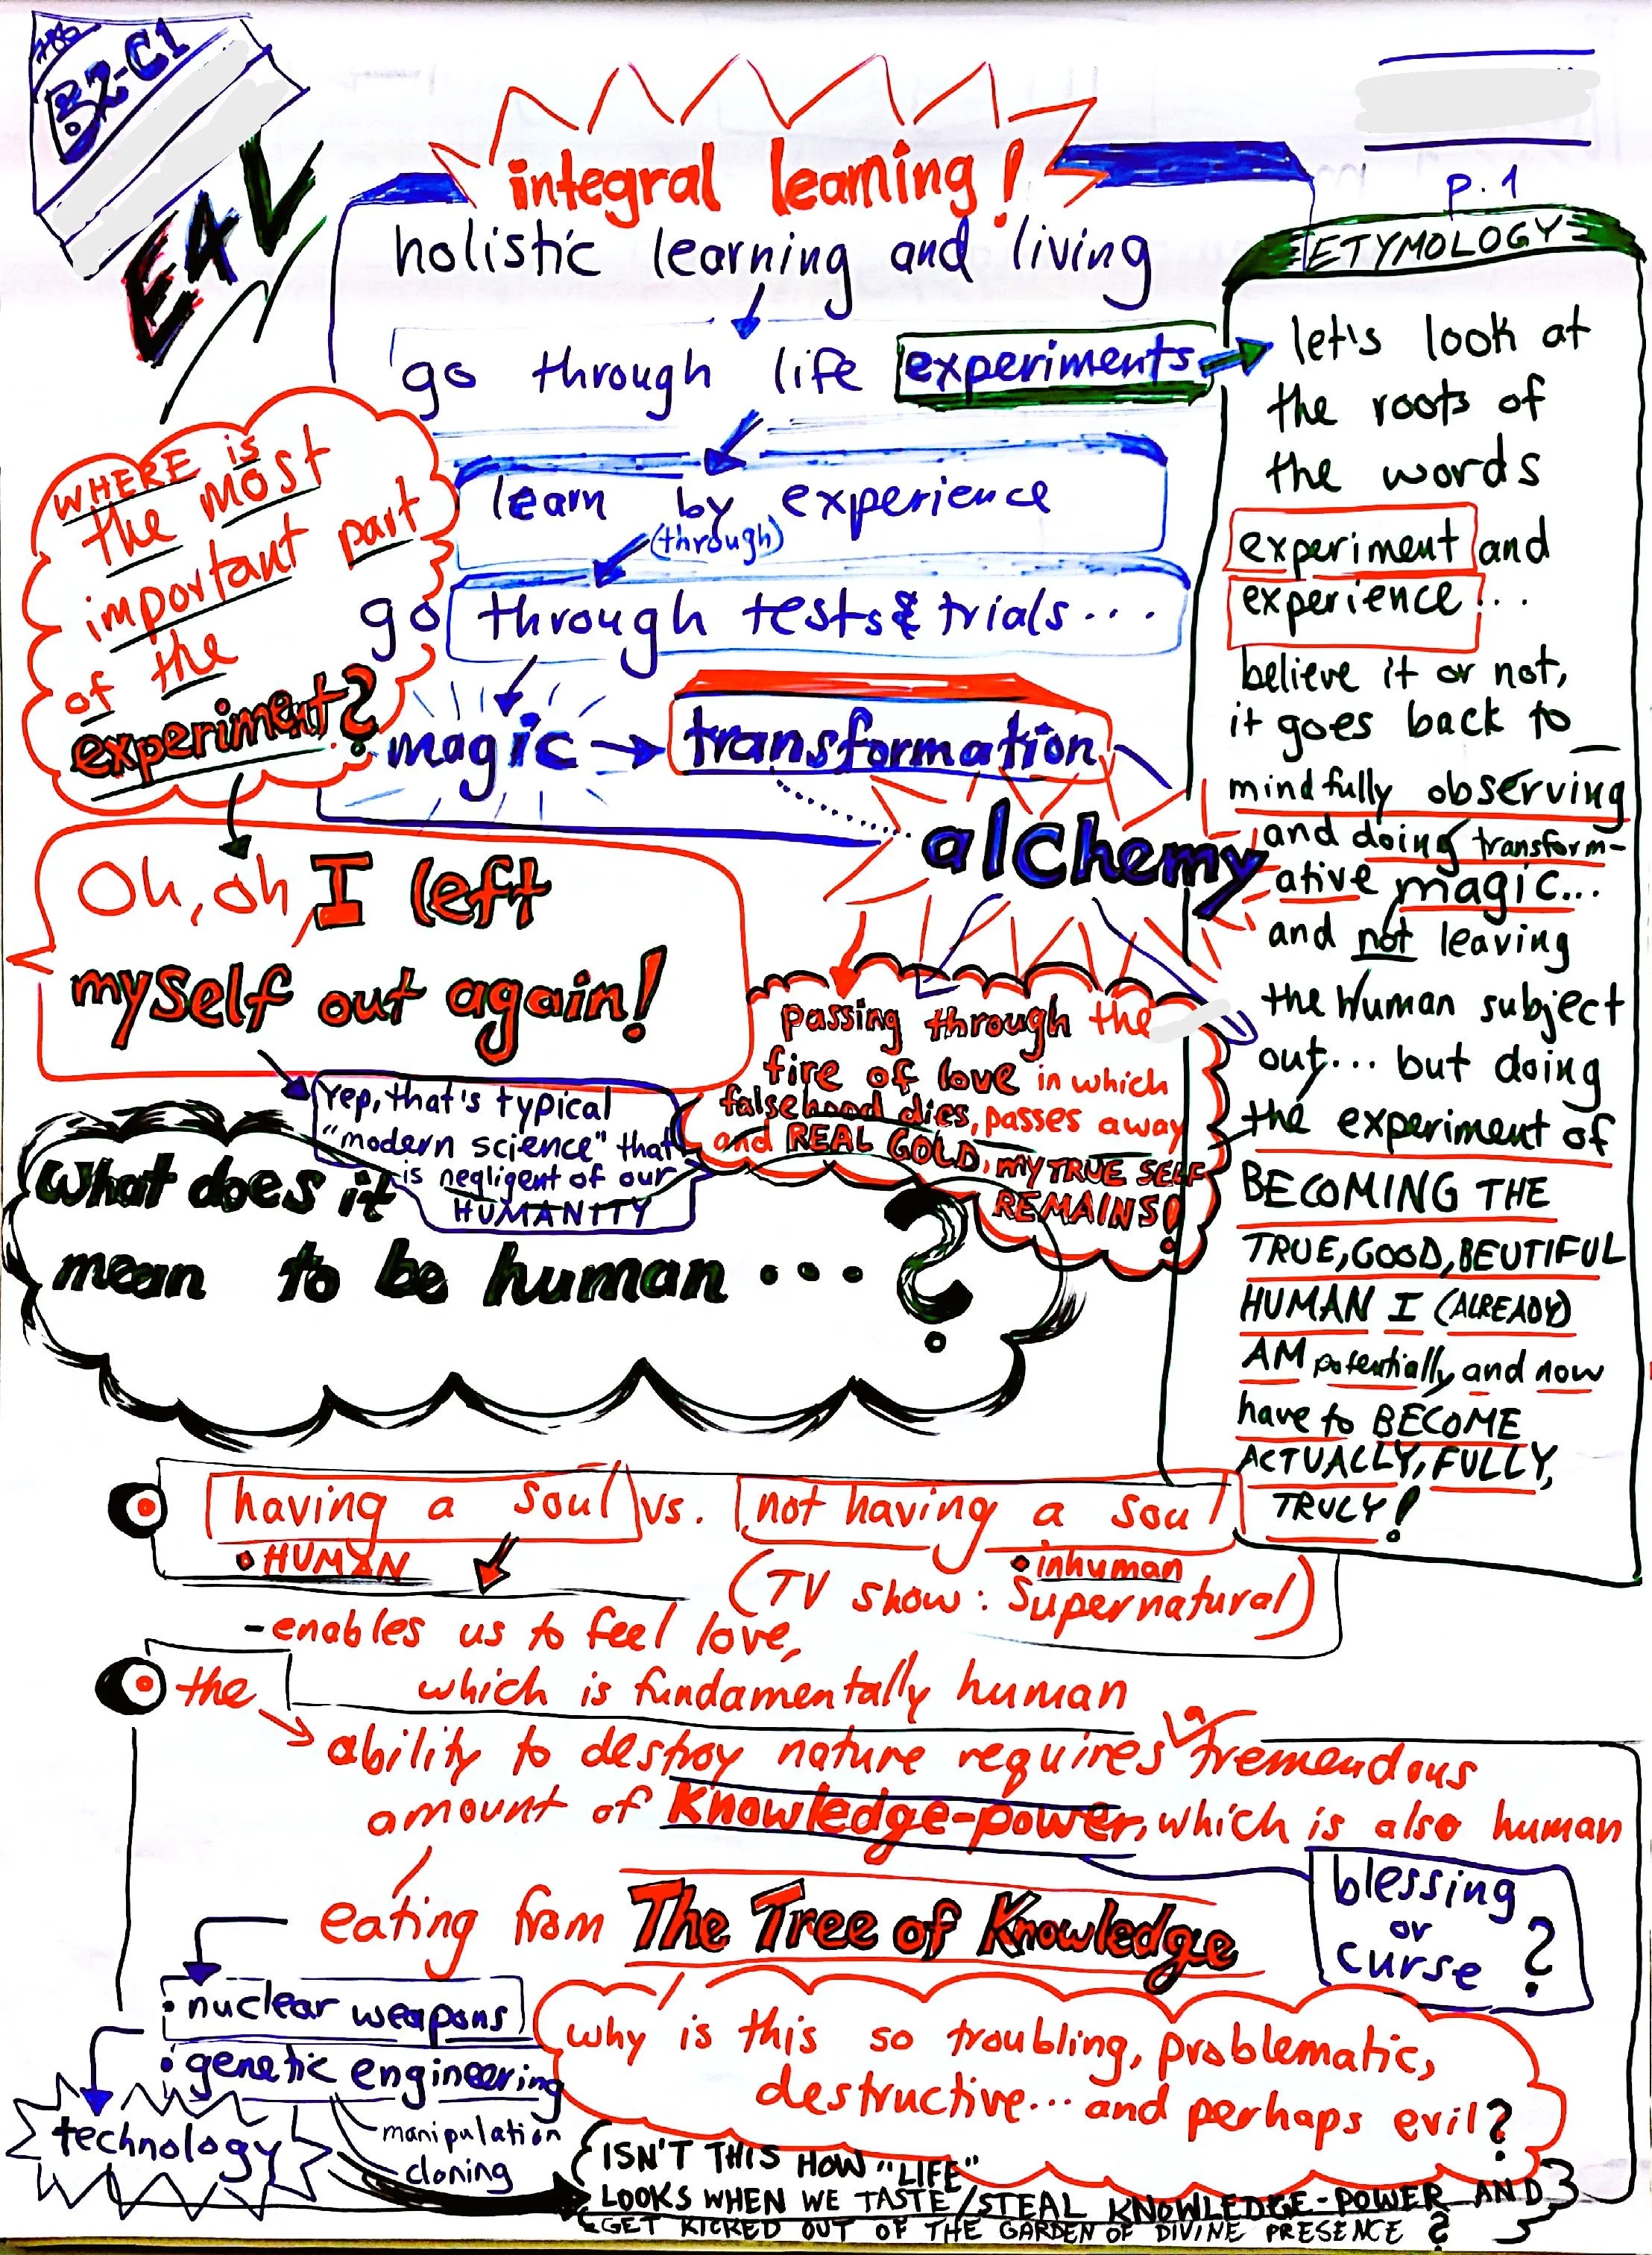 B2-C1
EAV
p. 1
integral learning!
holistic learning and living
go through life experiments
learn by experience
(through)
go through tests & trials...
magic → transformation
alchemy
WHERE is
the most
important part
of the
experiment?
Oh, oh I left
myself out again!
Yep, that's typical
"modern science" that
is negligent of our
HUMANITY
passing through the
fire of love in which
falsehood dies, passes away
and REAL GOLD, MY TRUE SELF
REMAINS!
ETYMOLOGY
let's look at
the roots of
the words
experiment and
experience...
believe it or not,
it goes back to
mindfully observing
and doing transform-
ative magic...
and not leaving
the Human subject
out... but doing
the experiment of
BECOMING THE
TRUE, GOOD, BEUTIFUL
HUMAN I (ALREADY)
AM potentially and now
have to BECOME
ACTUALLY, FULLY,
TRULY!
What does it
mean to be human...?
having a soul vs. not having a soul
• HUMAN
• inhuman
(TV show: Supernatural)
- enables us to feel love,
which is fundamentally human
the
ability to destroy nature requires a tremendous
amount of Knowledge-power, which is also human
blessing
or
curse?
eating from The Tree of Knowledge
• nuclear weapons
• genetic engineering
manipulation
cloning
technology
why is this so troubling, problematic,
destructive... and perhaps evil?
ISN'T THIS HOW "LIFE"
LOOKS WHEN WE TASTE/STEAL KNOWLEDGE-POWER AND
GET KICKED OUT OF THE GARDEN OF DIVINE PRESENCE?